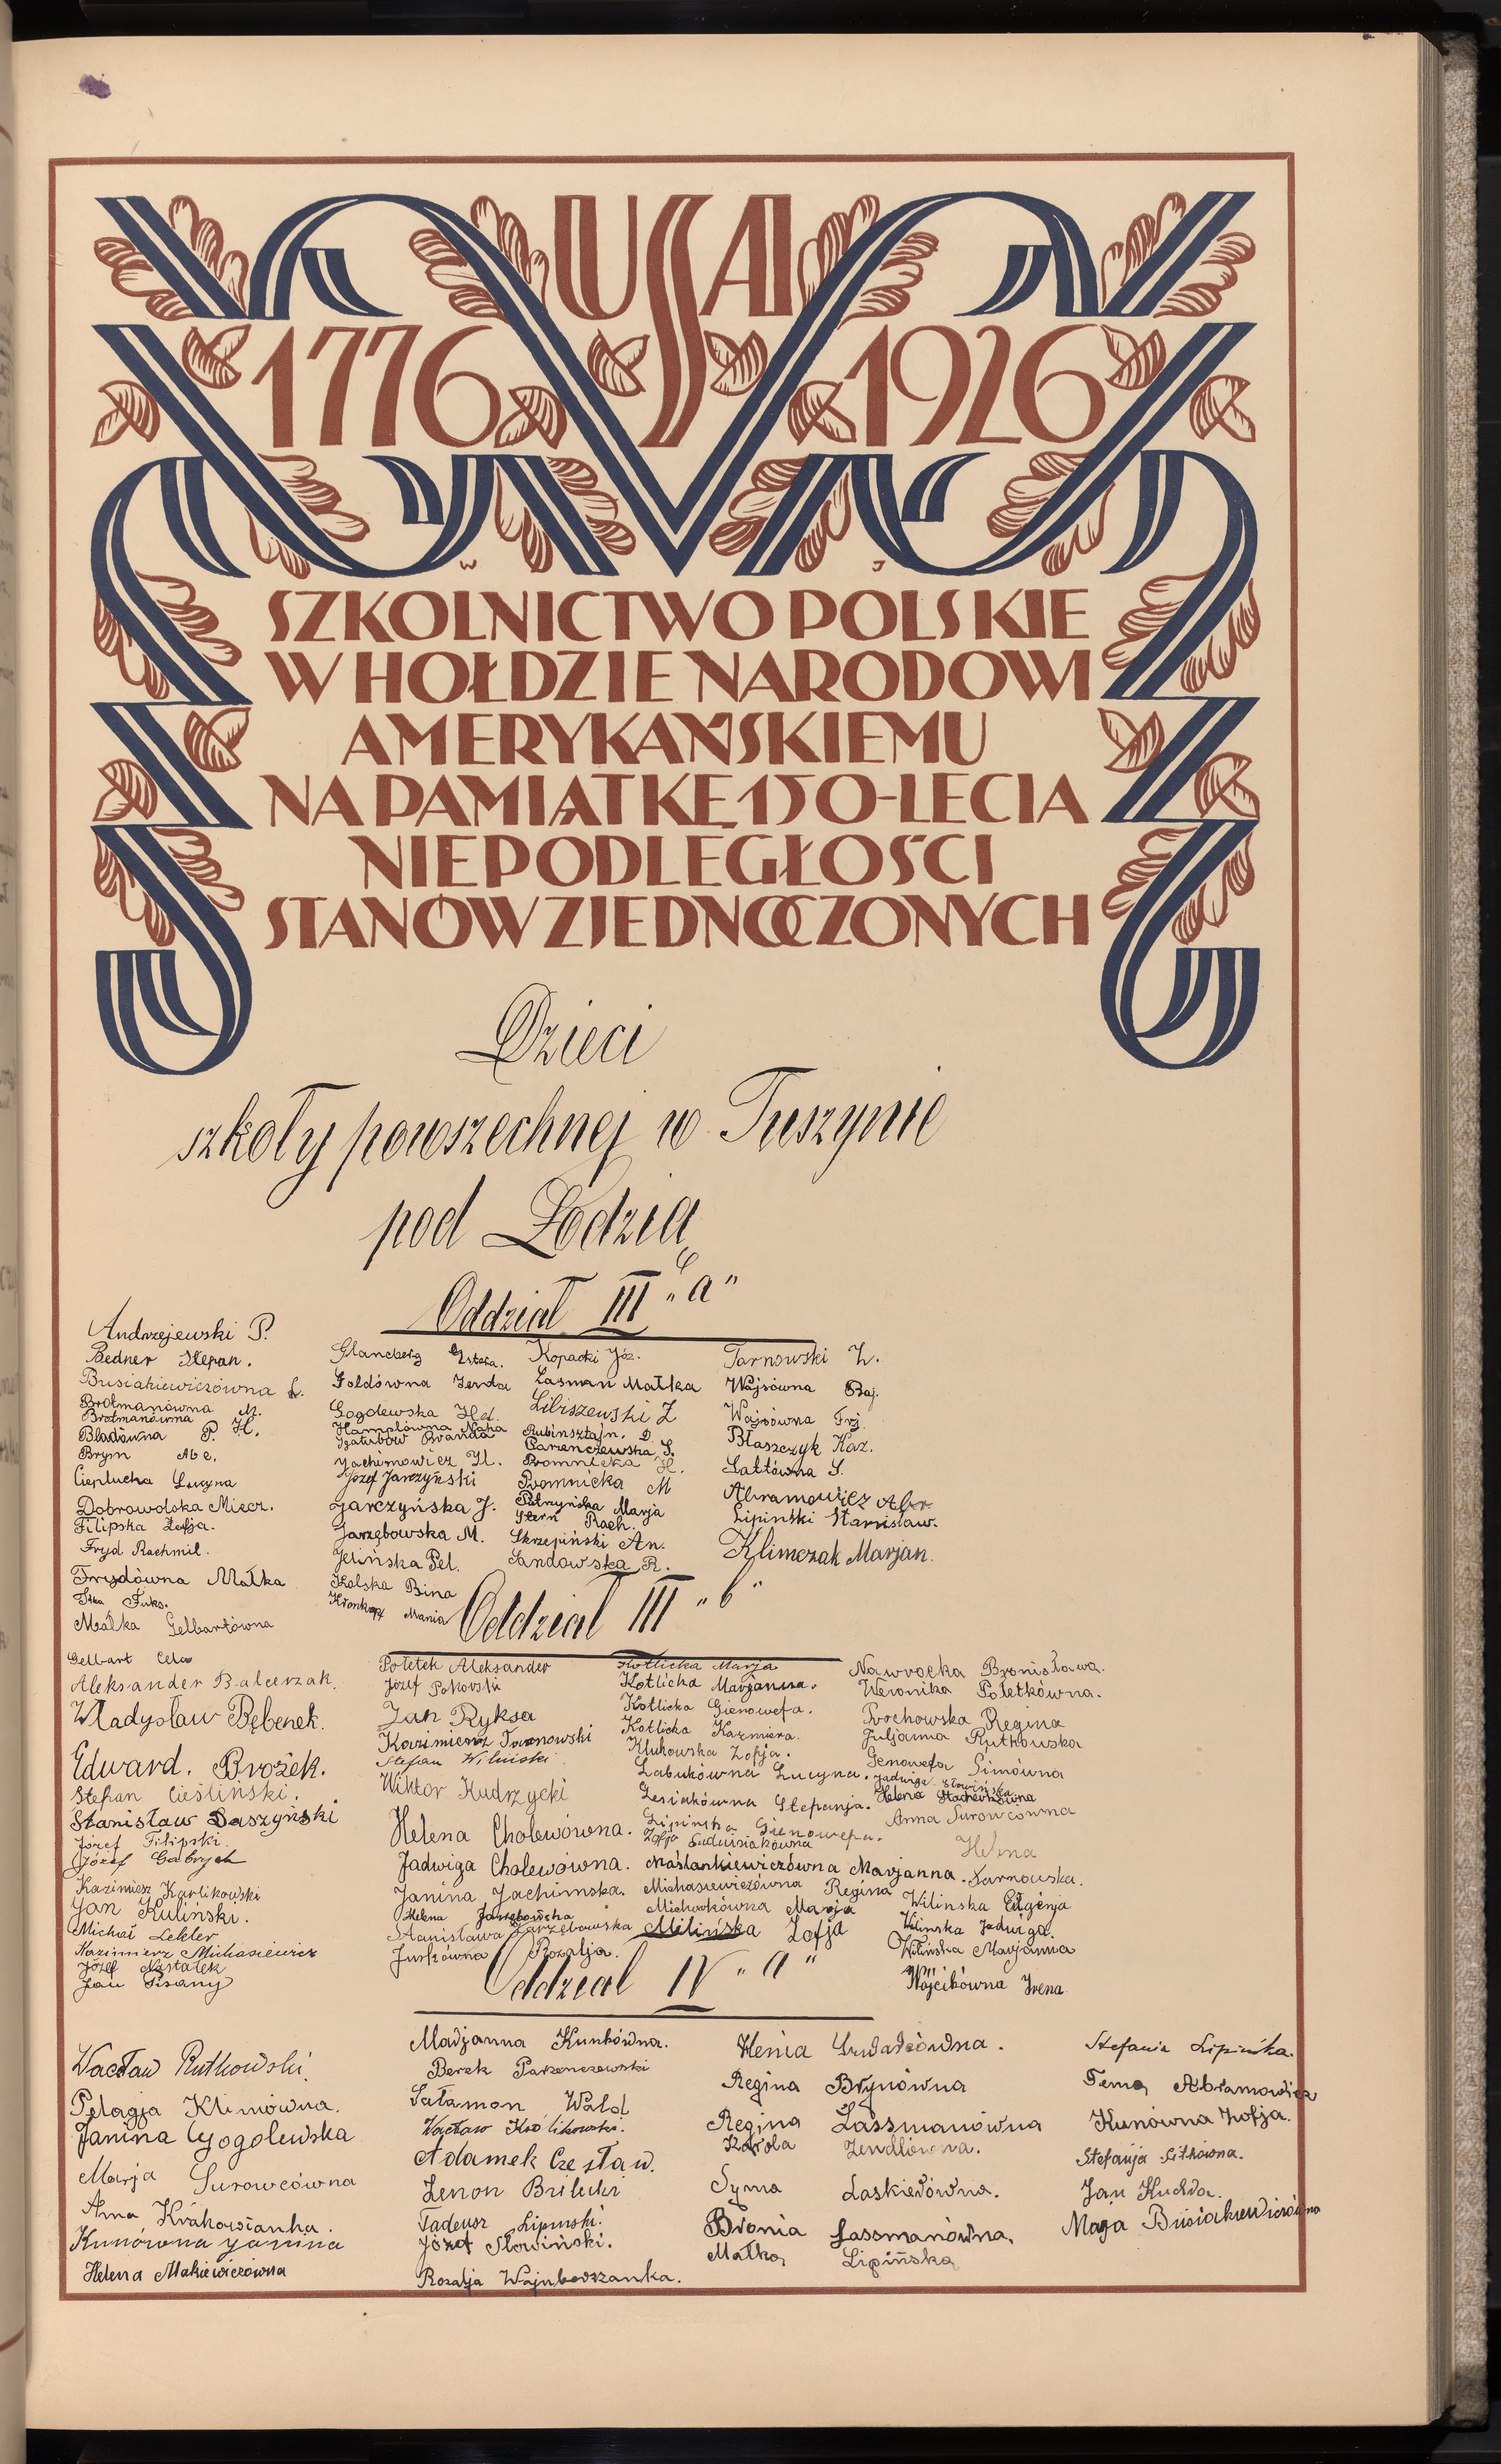 USA
1776 1926
W J
SZKOLNICTWO POLSKIE
W HOŁDZIE NARODOWI
AMERYKAŃSKIEMU
NA PAMIĄTKĘ 150-LECIA
NIEPODLEGŁOŚCI
STANÓW ZJEDNOCZONYCH
Dzieci
szkoły powszechnej w Tuszynie
pod Łodzią
Oddział III "a"
Andrzejewski P.
Bedner Stepan.
Busiakiewiczówna Ł.
Brotmanówna M.
Brotmanówna H.
Bladówna P.
Brym Abe.
Ciepłucha Lucyna
Dobrowolska Miecz.
Filipska Zofja.
Fryd Rachmil.
Frydówna Małka
Fuks.
Małka Gelbartówna
Gelbart
Glancberg Estera.
Goldówna Jenda
Gogolewska Hel.
Hamelówna
Jachimowicz H.
Józef Jarczyński
Jarczyńska J.
Jarzębowska M.
Jelińska Pel.
Kolska Bina
Mania
Kopacki Józ.
Lasman Małka
Libiszewski Z
Rubinsztajn. D.
Parzenczewska S.
Promnicka H.
Promnicka M
Marja
Stern Rach.
Skrzepiński An.
Sandowska R.
Tarnowski Z.
Wajsówna Baj.
Wajsówna Frj.
Błaszczyk Kaz.
Lattówna S.
Abramowicz Abr.
Lipiński Stanisław.
Klimczak Marjan.
Oddział III "b"
Aleksander Balcerzak.
Władysław Bębenek.
Edward. Brożek.
Stefan Cieśliński.
Stanisław Daszyński
Józef Filipski
Józef Gabrych
Kazimierz Karlikowski
Jan Kuliński.
Michał Lekler
Kazimierz Michasiewicz
Józef Nastałek
Jan Pisany
Połetek Aleksander
Józef Pokorski
Jan Ryksa
Kazimierz Tarnowski
Stefan Wiliński
Wiktor Kudrzycki
Helena Cholewówna.
Jadwiga Cholewówna.
Janina Jachimska.
Helena Jarzębowska
Stanisława Jarzębowska
Juskówna Rozalja.
Kotlicka Marja
Kotlicka Marjanna.
Kotlicka Gienowefa.
Kotlicka Kazmiera.
Klukowska Zofja.
Łabukówna Lucyna.
Lesiakówna Stefanja.
Lipińska Gienowefa.
Zofja Ludwisiakówna
Maślankiewiczówna Marjanna.
Michasiewiczówna Regina
Michałkówna Marja
Milińska Zofja
Nawrocka Bronisława.
Weronika Połetkówna.
Prochowska Regina
Juljanna Rutkowska
Genowefa Simówna
Jadwiga Słowińska
Helena Stacherkówna
Anna Surowcówna
Helena
Tarnowska.
Wilinska Eugenja
Wilinska Jadwiga.
Wilińska Marjanna
Wójcikówna Irena
Oddział IV "a"
Wacław Rutkowski.
Pelagja Klimówna.
Janina Gogolewska
Marja Surowcówna
Anna Krakowianka.
Kunówna Janina
Helena Makiewiczówna
Madjanna Kunkówna.
Berek Parzenczewski
Sałamon Wald
Wacław Królikowski.
Adamek Czesław.
Zenon Brilucki
Tadeusz Lipinski.
Józef Słowiński.
Rozalja Wajnbodrzanka.
Henia
Regina Brynówna
Regina Lassmanówna
Karola Zendlówna.
Syma Laskierówna.
Bronia Lassmanówna,
Małka, Lipińska
Stefania Lipińska.
Fema, Abramowicz
Kunówna Zofja.
Stefanja Sitkówna.
Jan Kuchda.
Maja Busiakiewiczówna